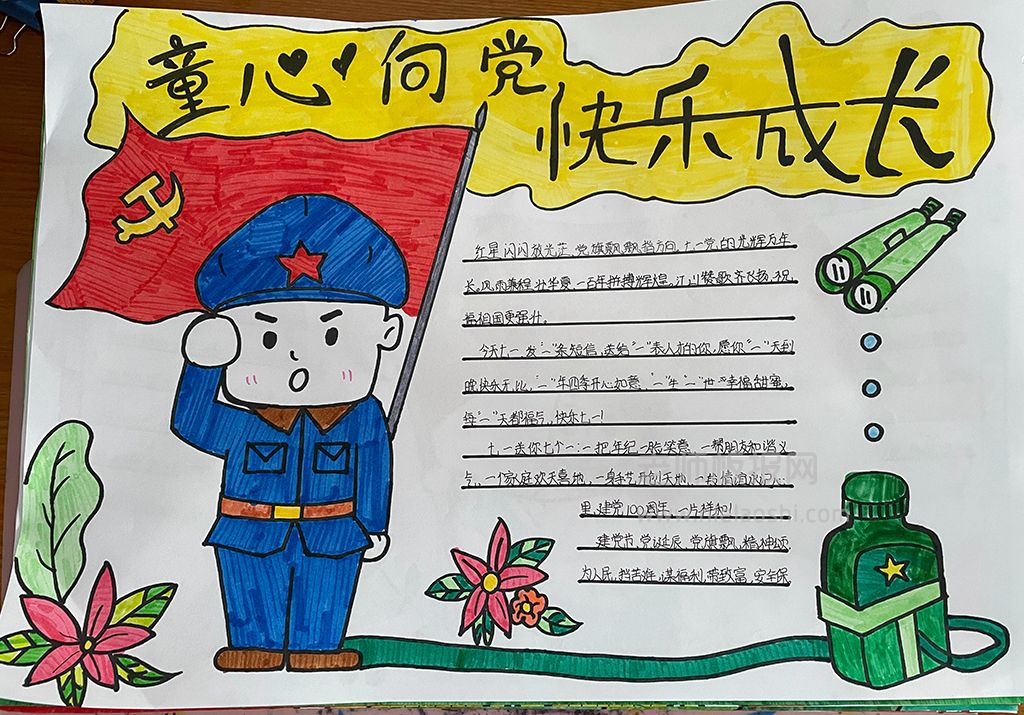 童心向党
快乐成长
红星闪闪放光芒,党旗飘飘挡方向,十一党的光辉万年
长。风雨兼程壮华夏,一百年拼搏辉煌。江山赞歌齐飞扬,祝
福祖国更强壮。
今天十一发“一”条短信,送给“一”表人才的你,愿你“一”天到
晚快乐无比,“一”年四季开心如意,“一”生“一”世幸福甜蜜,
每“一”天都福气,快乐十一!
十一送你七个一:一把年纪一脸笑意,一帮朋友和谐义
气,一个家庭欢天喜地,一身手艺开创天地,一段情谊永记心
里,建党100周年,一片祥和!
建党节,党诞辰,党旗飘,精神颂
为人民,挡苦难,谋福利,萌致富,安全保